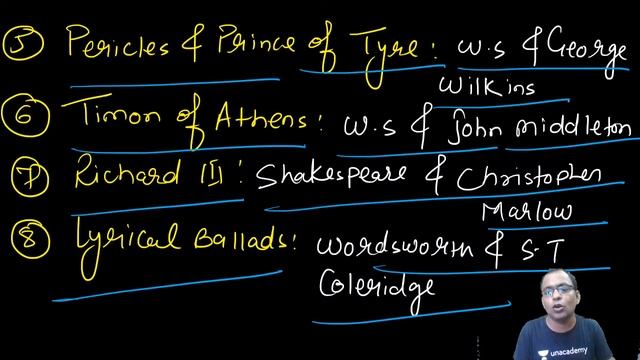 5 Pericles & Prince of Tyre: W.S & George
Wilkins
6 Timon of Athens: W.S & John Middleton
7 Richard III: Shakespeare & Christopher
Marlow
8 Lyrical Ballads: Wordsworth & S-T
Coleridge
unacademy